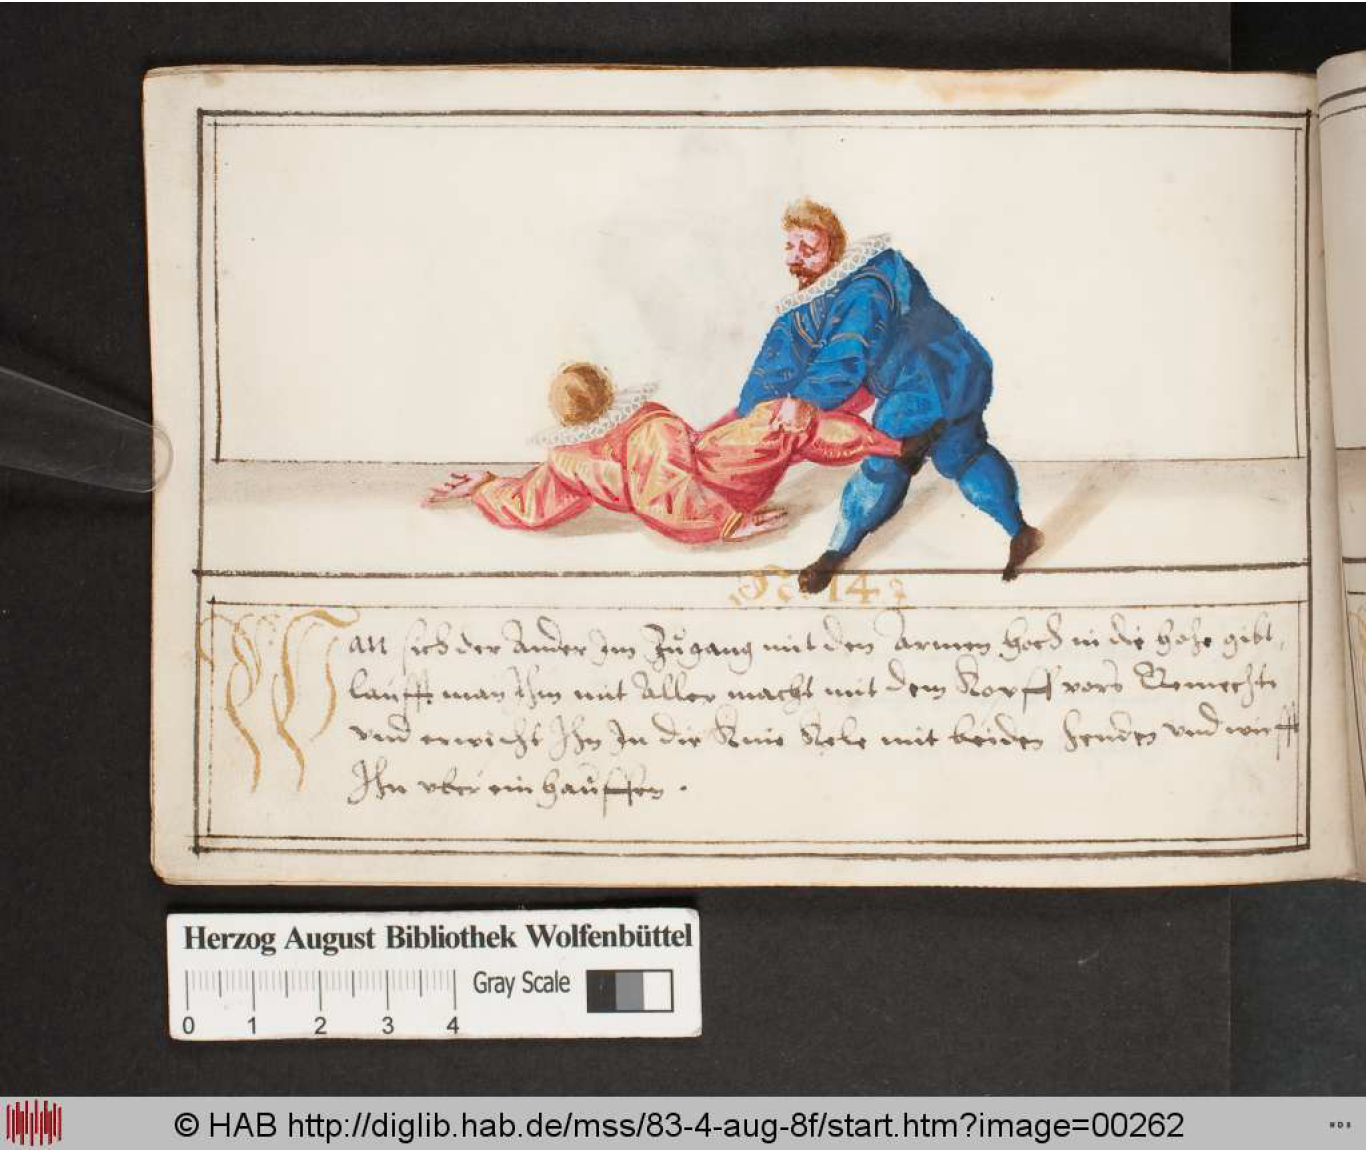 No 147
Wan sich der Ander Im Zugang mit den Armen hoch in die Hohe gibt,
lauff man Ihm mit Aller macht mit dem Kopff vors Gemechte
vnd erwischt Ihn In die Knie Kele mit beiden henden vnd wirfft
Ihn vber ein hauffen.
Herzog August Bibliothek Wolfenbüttel
Gray Scale
0 1 2 3 4
© HAB http://diglib.hab.de/mss/83-4-aug-8f/start.htm?image=00262